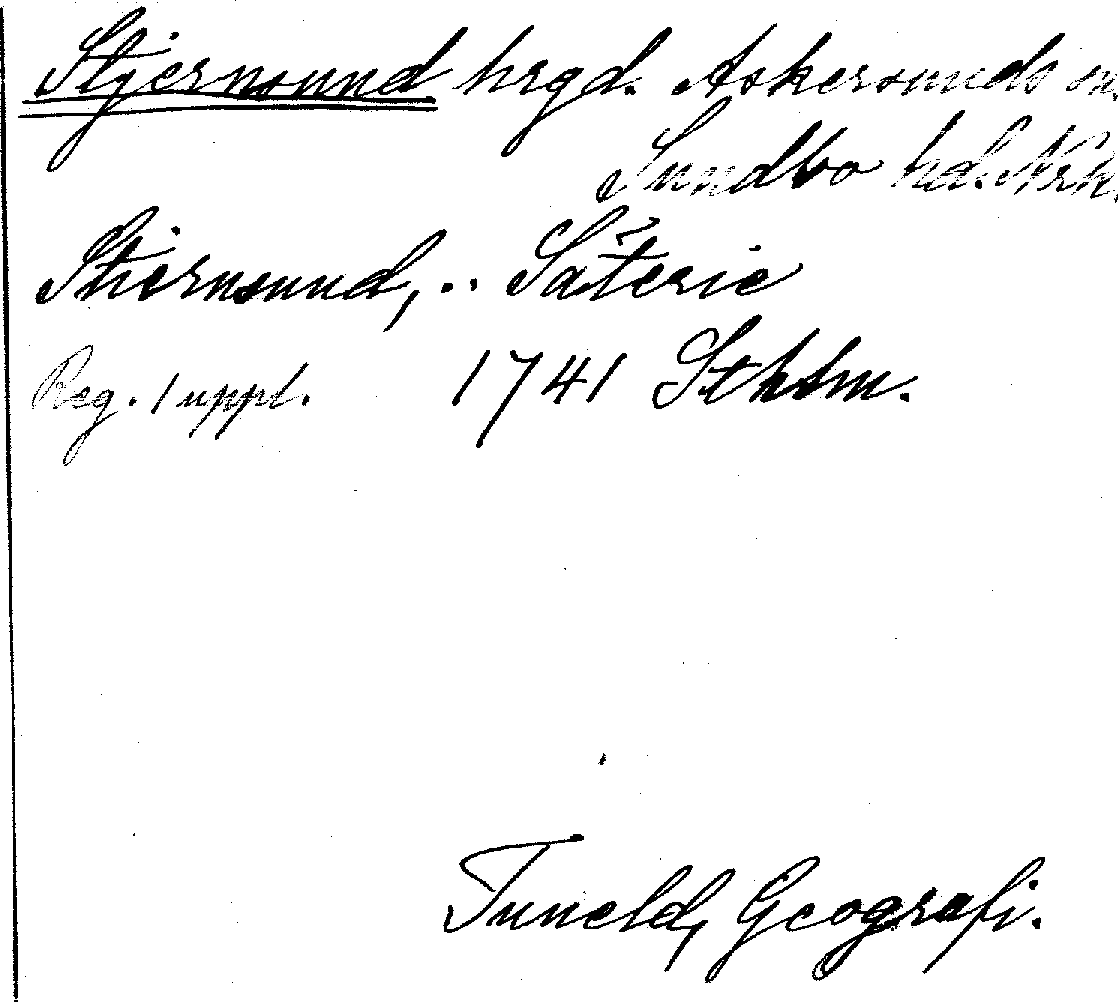 Stjernsund hrgd. Askersunds sn.
Sundbo hd. Nrk.
Stiernsund, .. Säterie
Reg. 1 uppl. 1741 Sthlm.
Tuneld, Geografi.